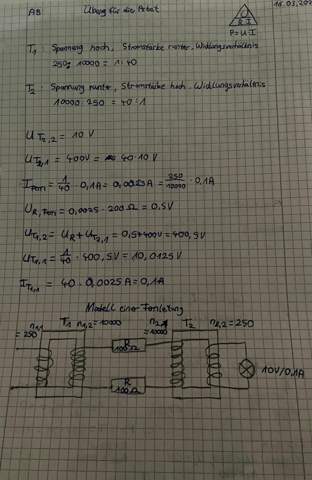 AB Übung für die Arbeit
U
R I
P=U·I
T1 Spannung hoch, Stromstärke runter, Widlungsverhältnis
250: 10000 = 1:40
T2 Spannung runter, Stromstärke hoch, Widlungsverhältnis
10000:250 = 40:1
U T2,2 = 10 V
U T2,1 = 400V = 40·10 V
I Fern = 1/40 · 0,1A = 0,0025A = 250/10000 · 0,1A
U R, Fern = 0,0025 · 200 Ω = 0,5V
U T1,2 = U R + U T2,1 = 0,5+400V = 400,5V
U T1,1 = 1/40 · 400,5V = 10,0125V
I T1,1 = 40 · 0,0025A = 0,1A
Modell einer Fernleitung
n1,1 = 250 T1 n1,2 = 10000 n2,1 = 10000 T2 n2,2 = 250
R
100Ω
10V/0,1A
R
100Ω